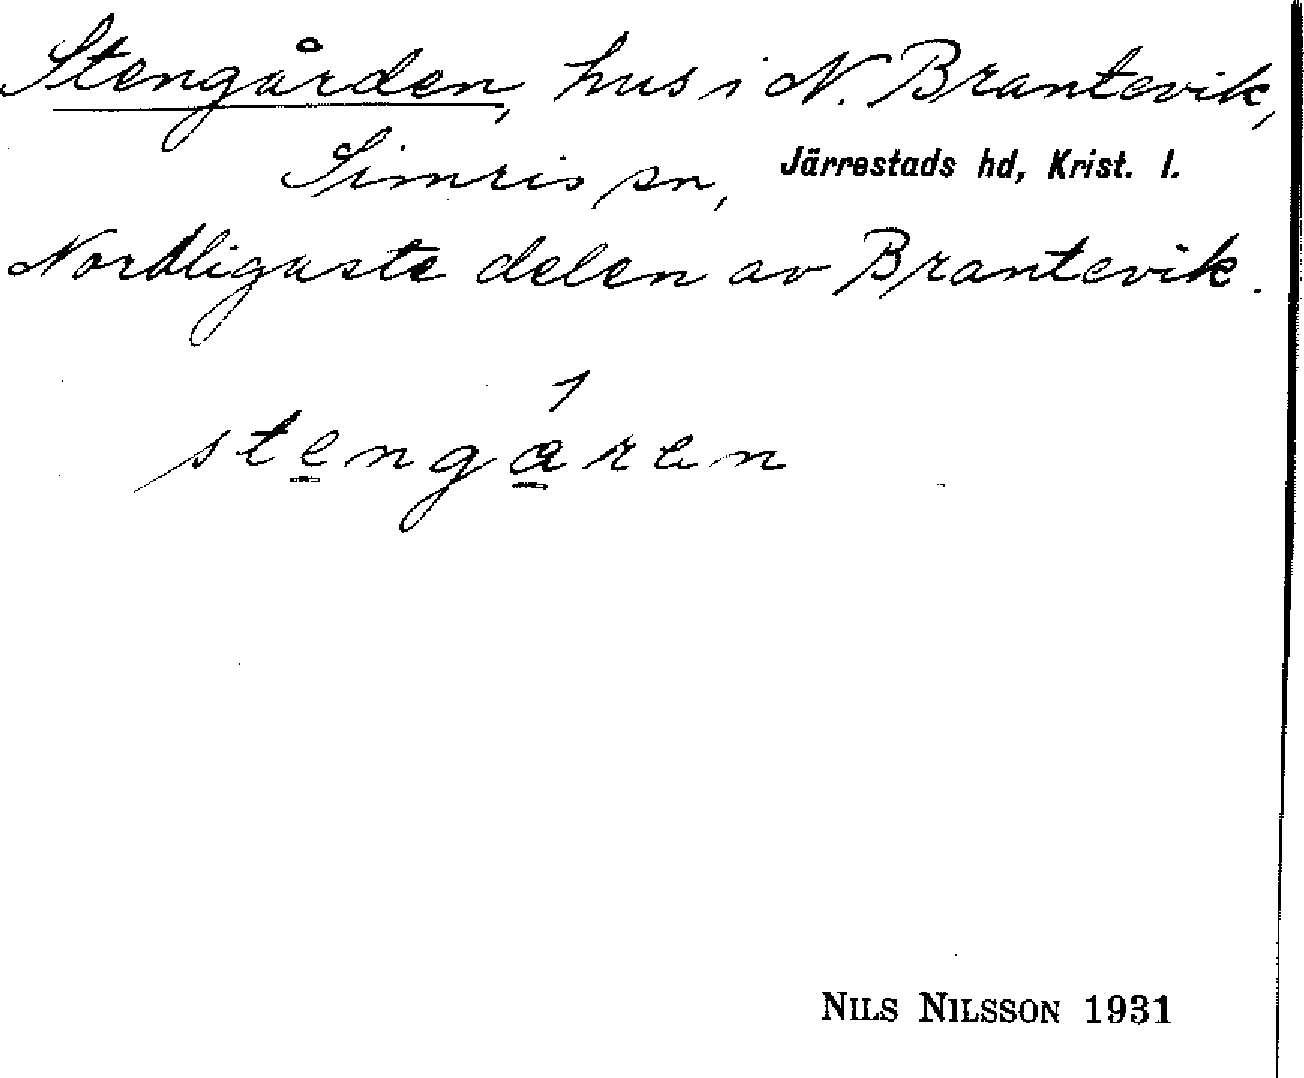 Stengården, hus i N. Brantevik,
Simris sn, Järrestads hd, Krist. l.
Nordligaste delen av Brantevik.
stengáren
NILS NILSSON 1931